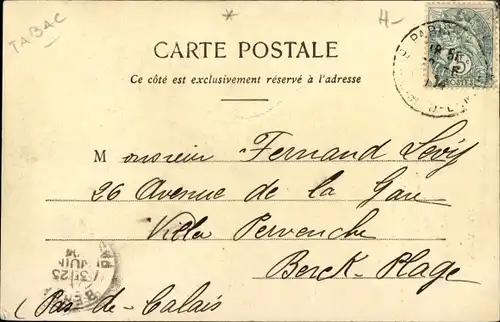 TABAC
H-
CARTE POSTALE
Ce côté est exclusivement réservé à l'adresse
PARIS
5c
POSTES
Monsieur Fernand Levy
26 Avenue de la Gare
Villa Pervenche
Berck-Plage
(Pas-de-Calais
3E 25
JUIN
BERCK